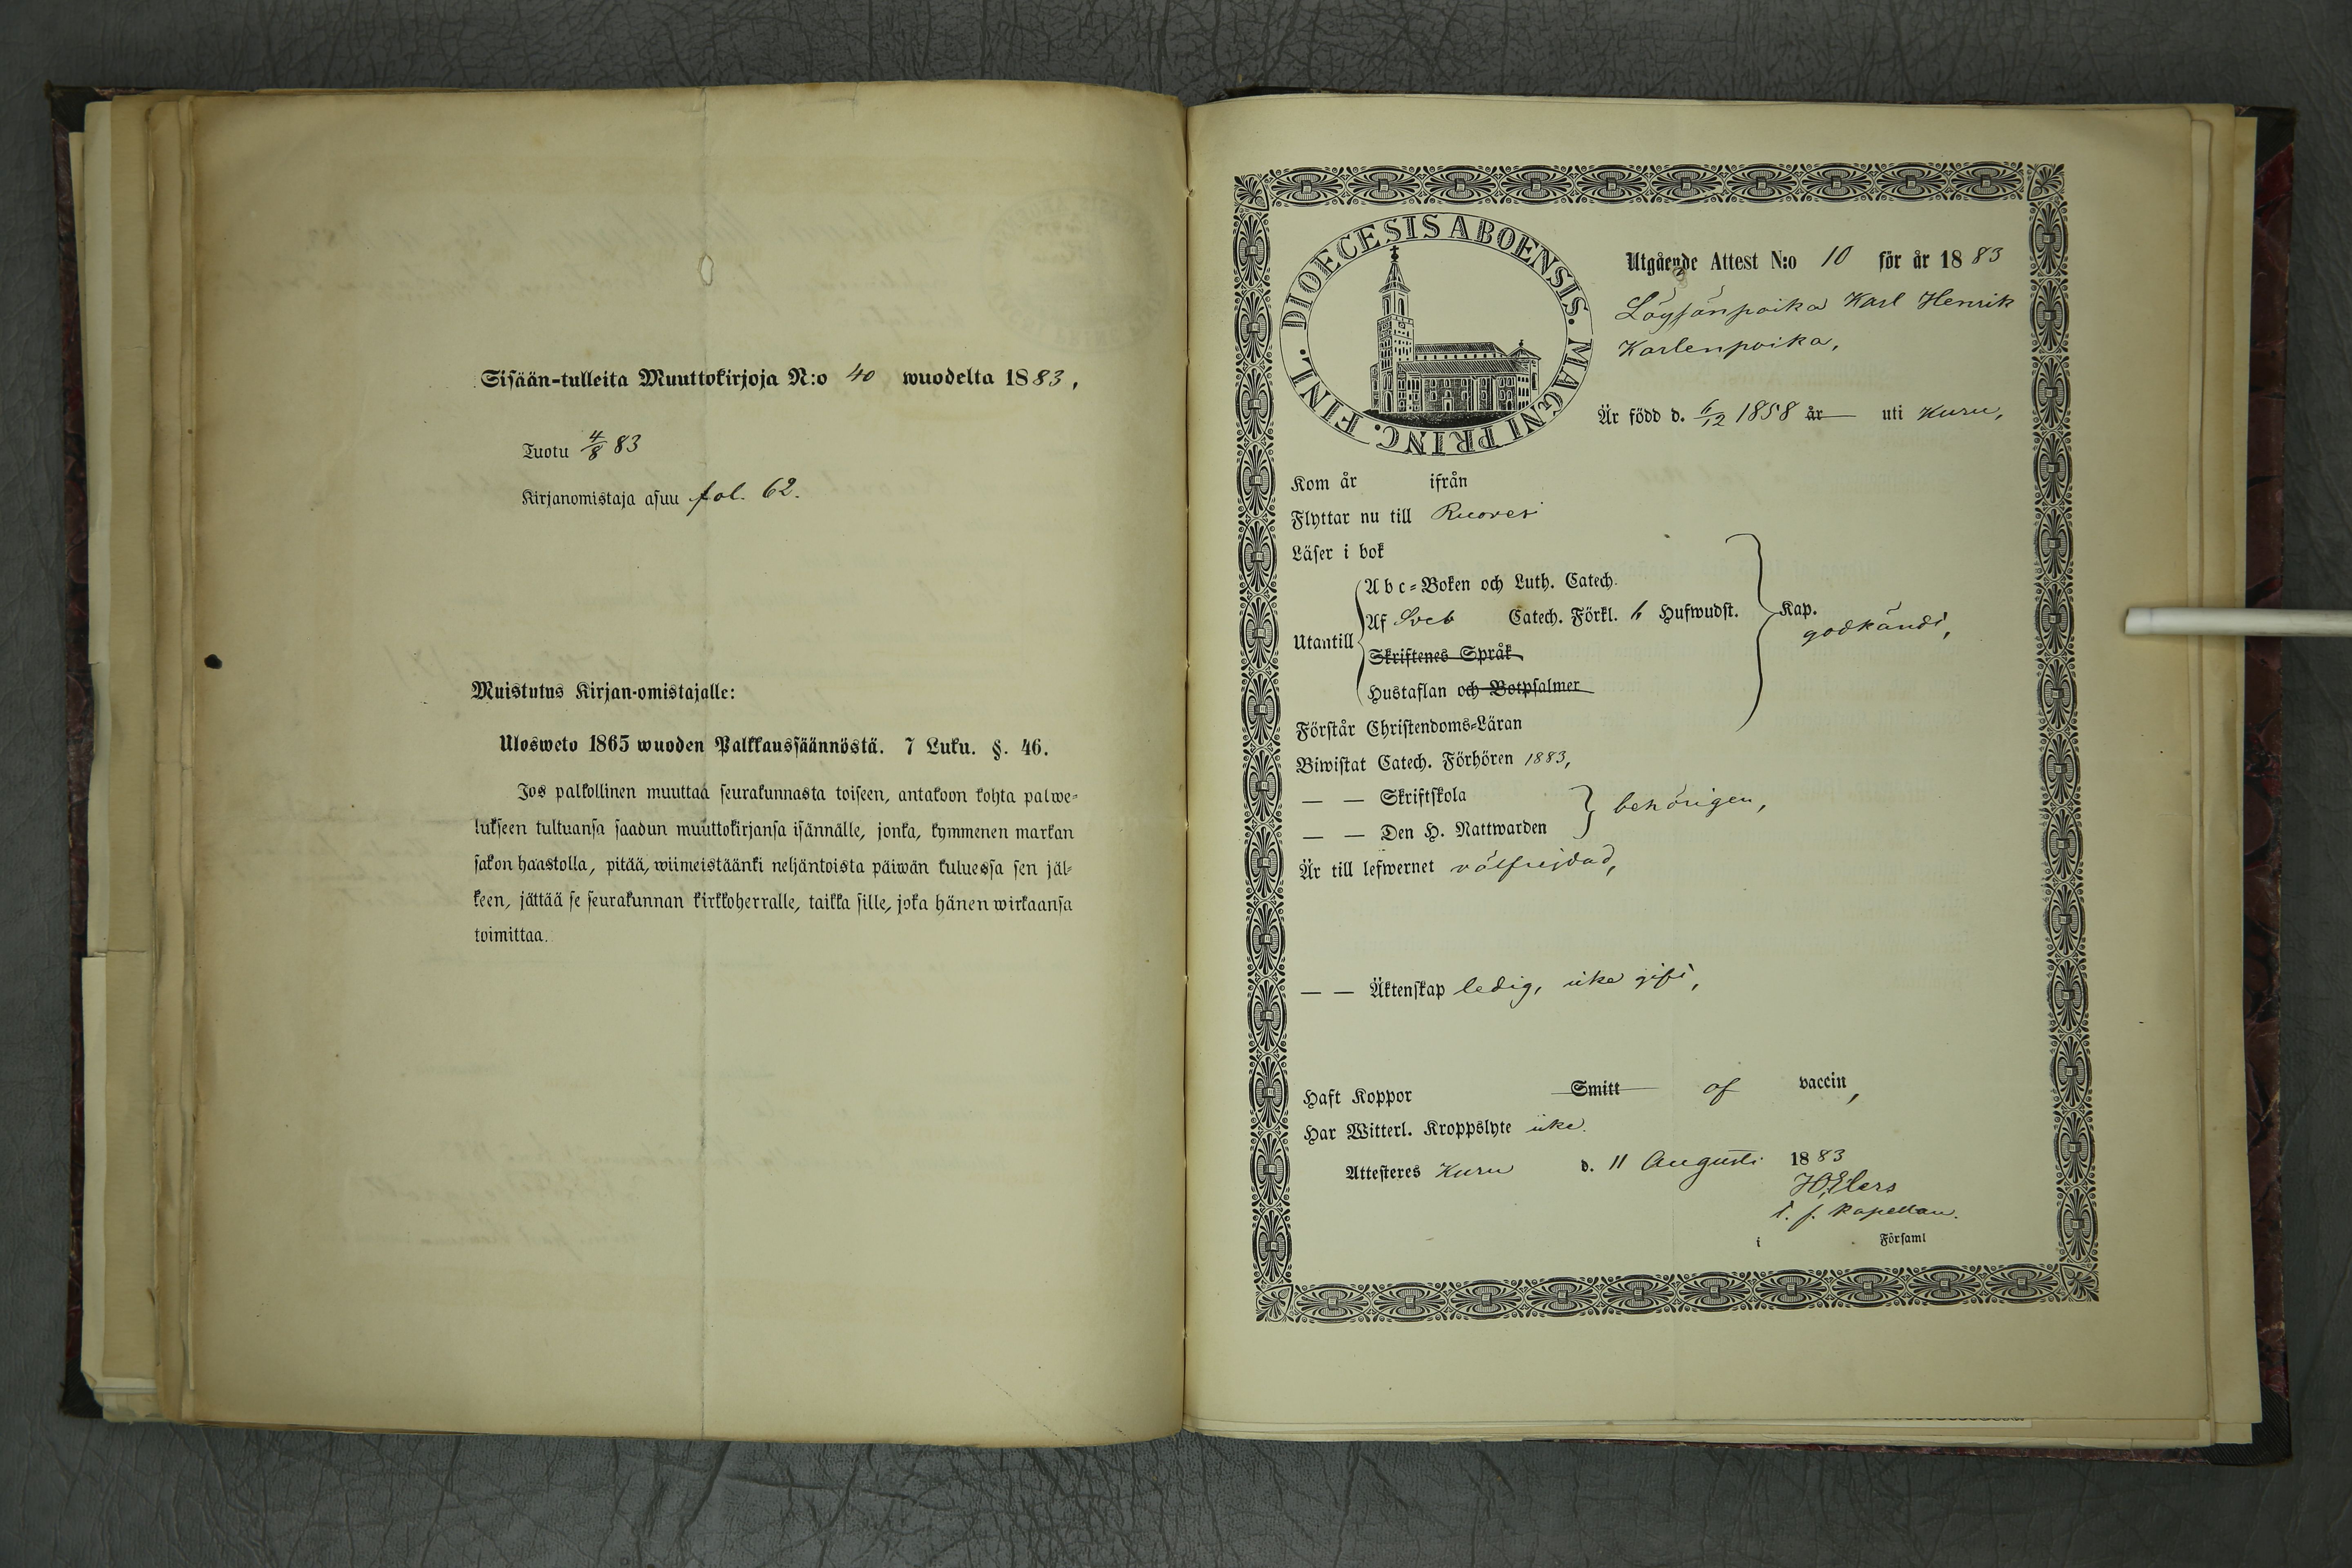 Sisään-tulleita Muuttokirjoja N:o 40 wuodelta 1883,
Tuotu 4/8 83
Kirjanomistaja asuu fol. 62.
Muistutus Kirjan-omistajalle:
Ulosweto 1865 wuoden Palkkaussäännöstä. 7 Luku. §. 46.
Jos palkollinen muuttaa seurakunnasta toiseen, antakoon kohta palwe-
lukseen tultuansa saadun muuttokirjansa isännälle, jonka, kymmenen markan
sakon haastolla, pitää, wiimeistäänki neljäntoista päiwän kuluessa sen jäl-
keen, jättää se seurakunnan kirkkoherralle, taikka sille, joka hänen wirkaansa
toimittaa.
DIOECESIS ABOENSIS. MAGNI PRINC. FINL.
Utgående Attest N:o 10 för år 1883
Löysänpoika Karl Henrik
Karlenpoika,
Är född d. 6/12 1858 år uti Kuru,
Kom år ifrån
Flyttar nu till Ruovesi
Läser i bok
Abc-Boken och Luth. Catech.
Utantill Af Sveb Catech. Förkl. 6 Hufwudst. Kap. godkändt,
Skriftenes Språk
Hustaflan och Botpsalmer
Förstår Christendoms-Läran
Biwistat Catech. Förhören 1883,
— — Skriftskola
— — Den H. Nattwarden behörigen,
Är till lefwernet välfrejdad,
— — Äktenskap ledig, icke gift,
Haft Koppor Smitt af vaccin,
Har Witterl. Kroppslyte icke.
Attesteres Kuru d. 11 Augusti 1883
H. Elers
t. f. Kapellan.
i Församl